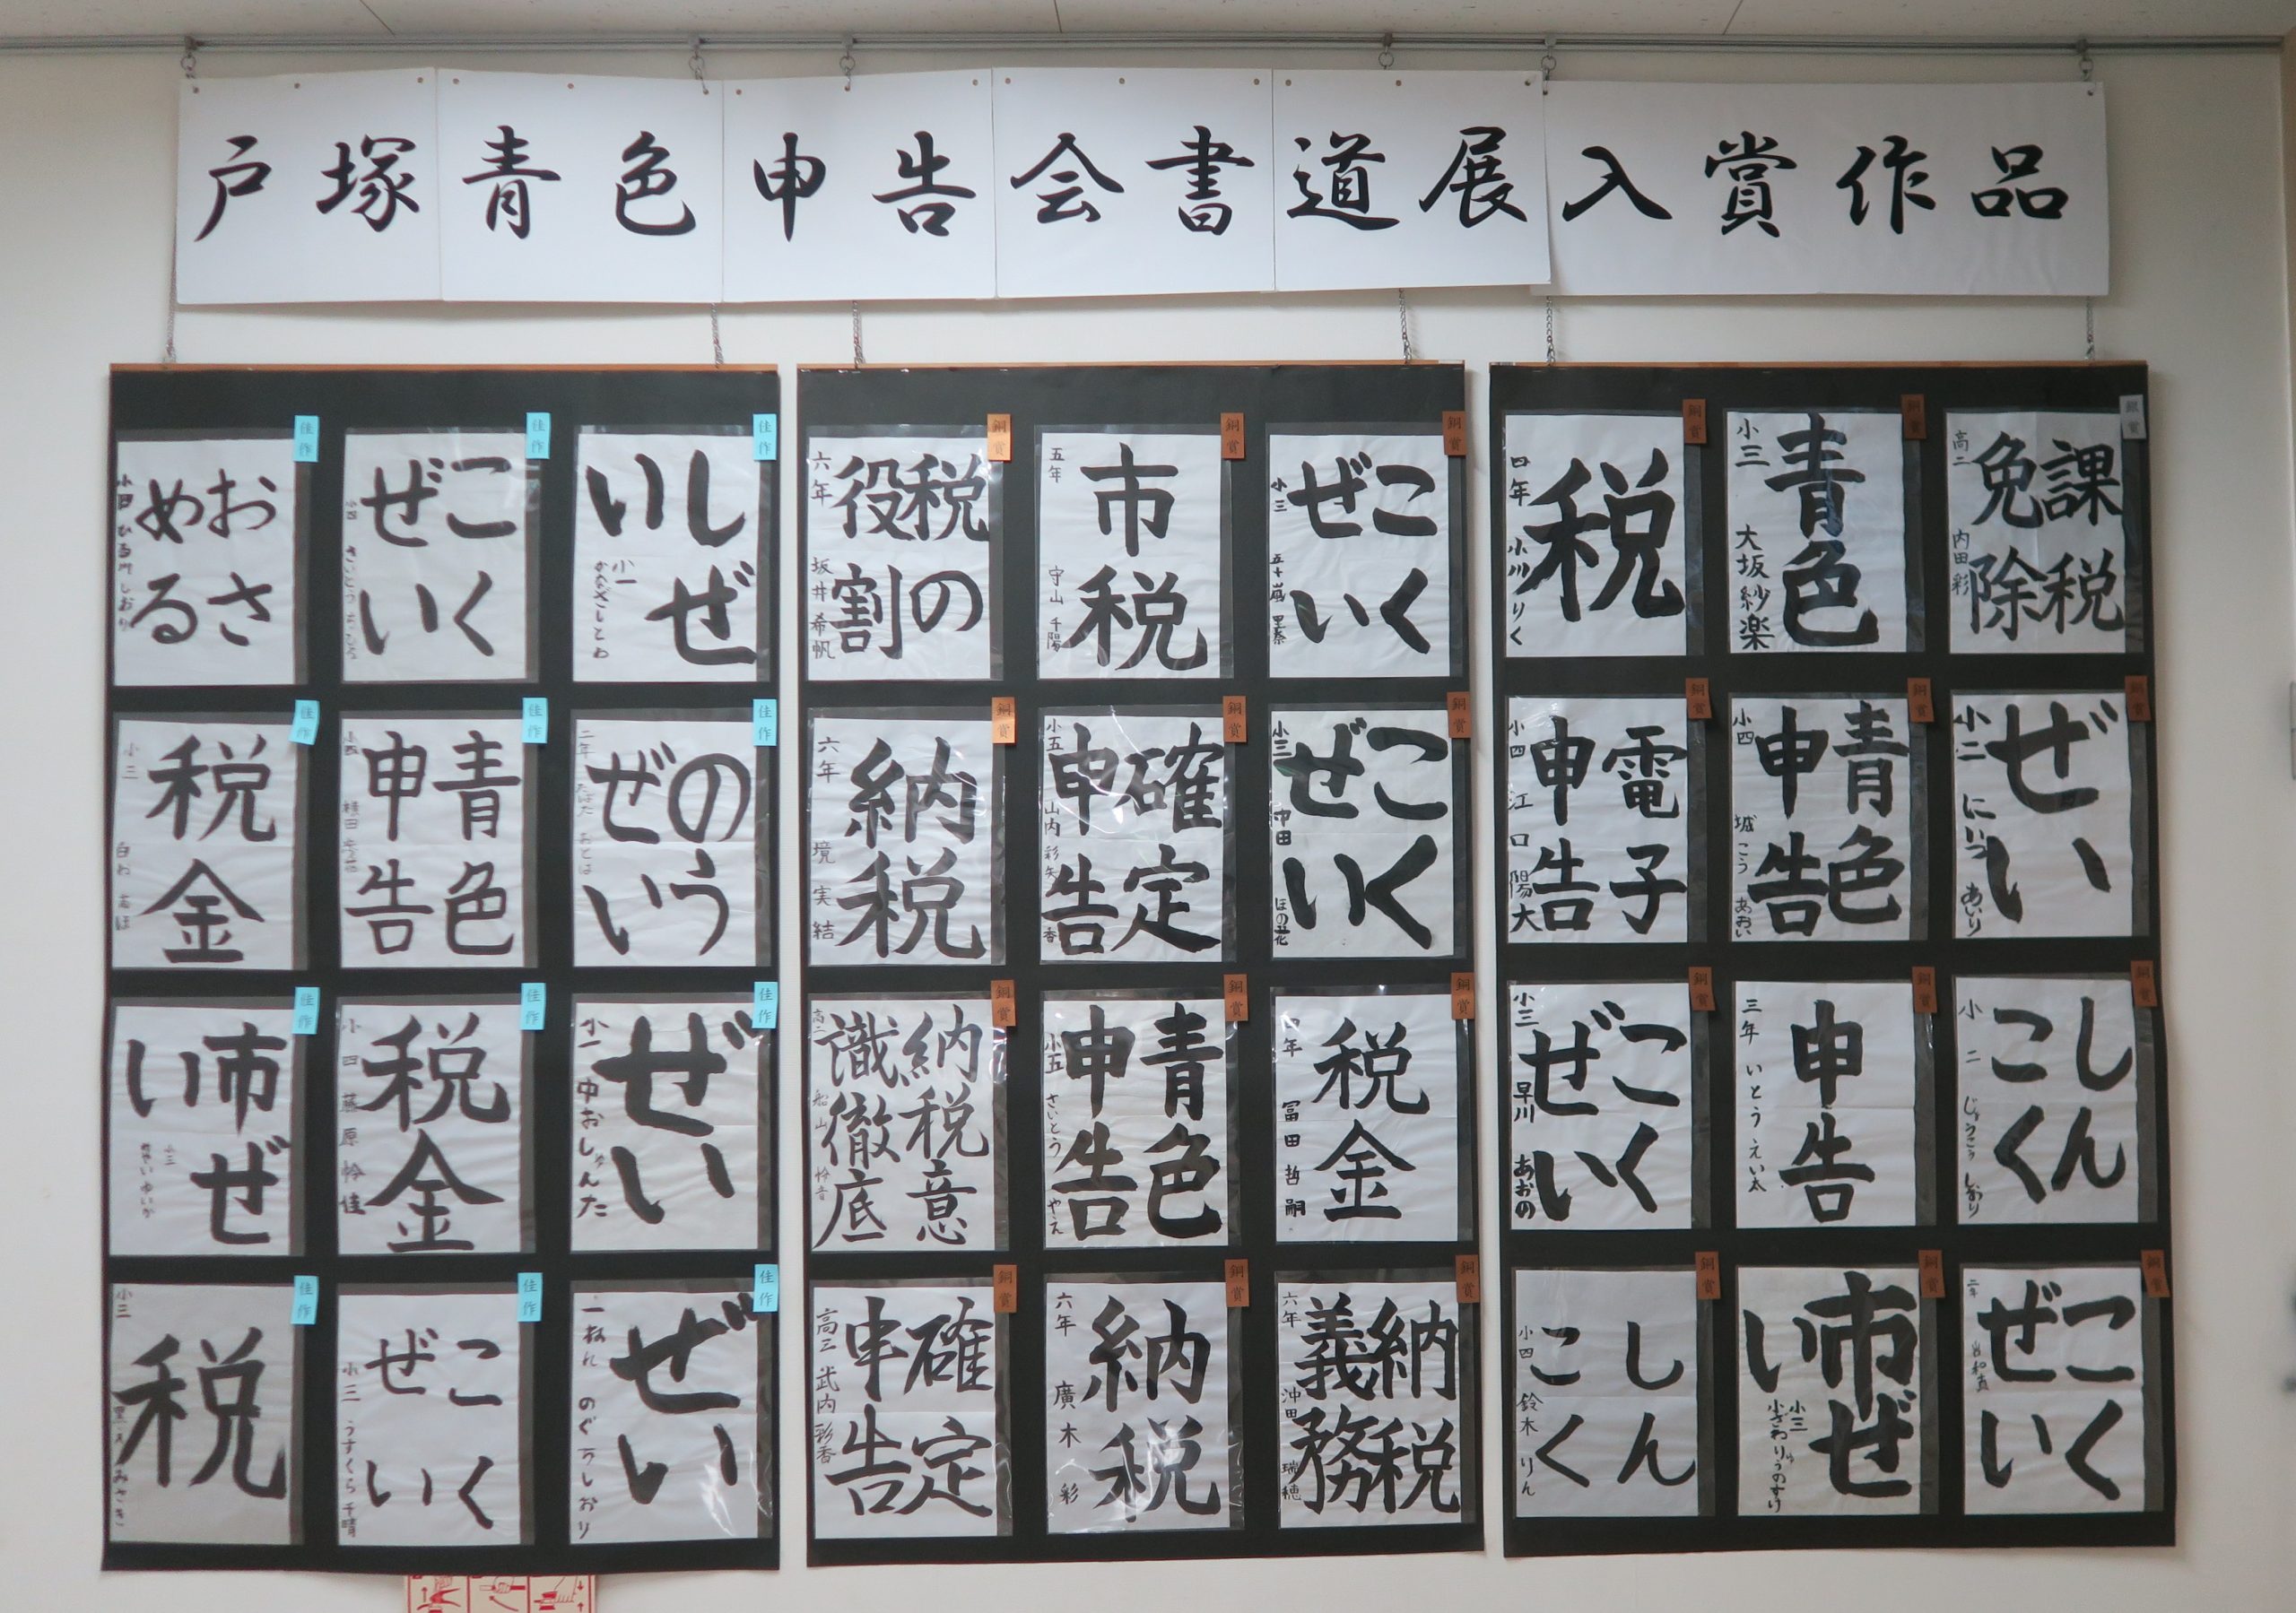 戸塚青色申告会書道展入賞作品
銀賞
課税
免除
高二 内田 彩
銅賞
青色
小三 大坂紗楽
銅賞
税
四年 小川りく
銅賞
ぜい
小二 にいつ あいり
銅賞
青色
申告
小四 城こう あおい
銅賞
電子
申告
小四 江口陽大
銅賞
しん
こく
小二 しおり
銅賞
申告
三年 いとうえい太
銅賞
こく
ぜい
小三 早川 あおの
銅賞
こく
ぜい
二年
銅賞
市ぜ
い
小三
銅賞
しん
こく
小四 鈴木 りん
銅賞
こく
ぜい
小三 五十嵐
銅賞
市税
五年 守山 千陽
銅賞
税の
役割
六年 坂井希帆
銅賞
こく
ぜい
小三 沖田 ほの花
銅賞
確定
申告
小五 山内 彩矢香
銅賞
納税
六年 境 実結
銅賞
税金
四年 冨田哲嗣
銅賞
青色
申告
小五 さいとう やえ
銅賞
納税意
識徹底
高二 船山 怜音
銅賞
納税
義務
六年 沖田 瑞穂
銅賞
納税
六年 廣木 彩
銅賞
確定
申告
高三 武内彩香
佳作
しぜ
い
小一 かなざしとわ
佳作
こく
ぜい
小四 さいとう
佳作
おさ
める
しおり
佳作
のう
ぜい
二年 たばた おとは
佳作
青色
申告
小四
佳作
税金
小三
佳作
ぜい
小一 中お しゅんた
佳作
税金
小四 藤原怜佳
佳作
市ぜ
い
小三
佳作
ぜい
一ねん のぐちしおり
佳作
こく
ぜい
小三 うすくら千晴
佳作
税
小三 みさき